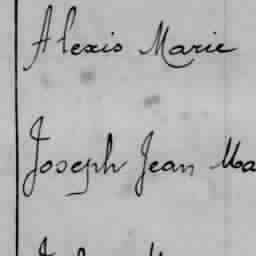 Alexis Marie
Joseph Jean Ma